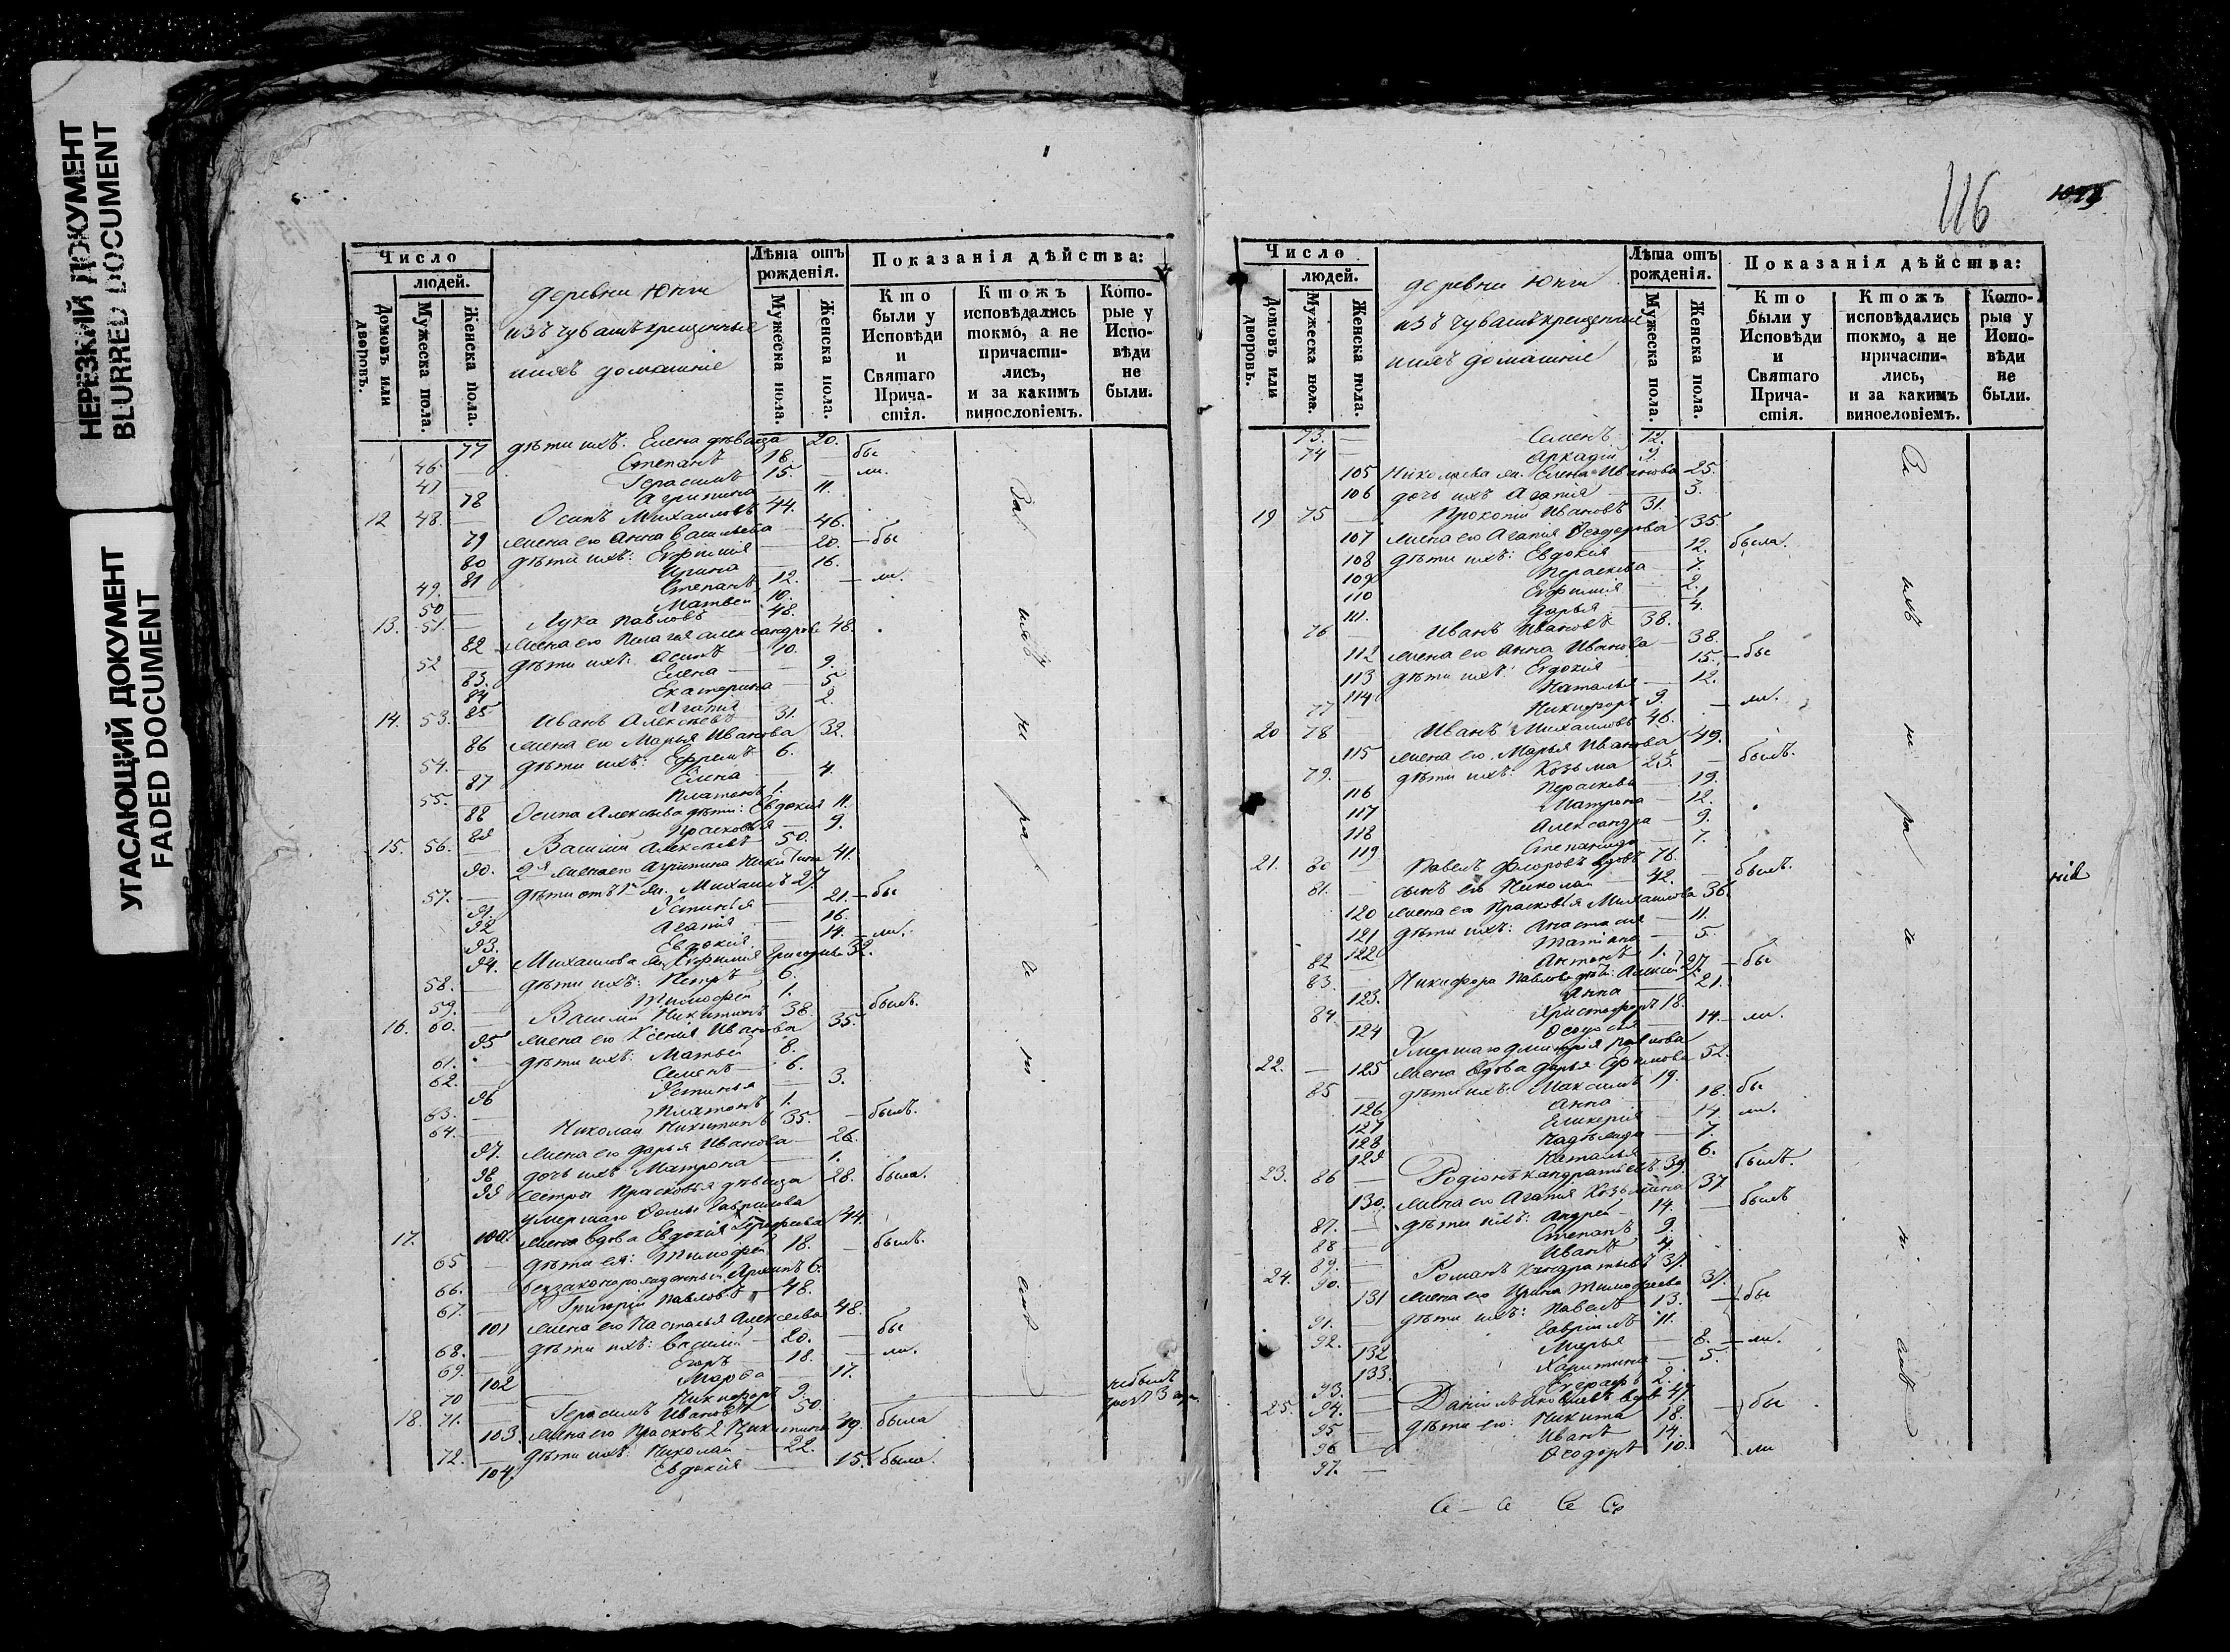 НЕРЕЗКИЙ ДОКУМЕНТ
BLURRED DOCUMENT
УГАСАЮЩИЙ ДОКУМЕНТ
FADED DOCUMENT
Число
людей.
Домовъ или дворовъ.
Мужеска пола.
Женска пола.
деревни Юнги
изъ чувашъ крещенные
и ихъ домашніе
Лѣта отъ рожденія.
Мужеска пола.
Женска пола.
Показанія дѣйства:
Кто были у Исповѣди и Святаго Прича- стія.
Ктожъ исповѣдались токмо, а не причасти- лись, и за какимъ винословіемъ.
Кото- рые у Испо- вѣди не были.
77 дѣти ихъ: Елена дѣвица 20.
46 — Степанъ 18. — бы
47 — Герасимъ 15. — ли.
78 Агрипина — 11.
12 48. — Осипъ Михаиловъ 44.
79 жена его Анна Васильева — 46.
80 дѣти ихъ: Евфимія — 20. — бы
81 Ирина — 16.
49. — Степанъ 12. — ли.
50 — Матвей 10.
13. 51. — Лука Павловъ 48.
82 жена его Пелагея Александрова 48.
52 — дѣти ихъ: Осипъ 10.
83. Елена — 9.
84 Екатерина — 5
85 Агапія — 2.
14. 53. Иванъ Алексѣевъ 31.
86 жена его Марья Иванова 32.
54. — дѣти ихъ: Ефремъ 6.
87 Елена — 4.
55. — Платонъ 1.
88 Осипа Алексѣева дѣти: Евдокія 11.
89 Прасковья — 9.
15. 56. — Василій Алексѣевъ 50.
90. 2я жена его Агрипина Никитина 41.
57. — дѣти отъ 1й ж. Михаилъ 27.
91. Устинья — 21. — бы
92 Агапія — 16.
93. Евдокія — 14. — ли.
94. Михаилова ж. Евфимія Григорьева 32.
58. — дѣти ихъ: Петръ 6.
59. — Тимофей 1.
16. 60. Василій Никитинъ 38. — былъ.
95 жена его Ксенія Иванова 35.
61. — дѣти ихъ: Матвей 8.
62. Семенъ — 6.
96 Устинья — 3.
63. — Платонъ 1.
64. — Николай Никитинъ 35. — былъ.
97. жена его Дарья Иванова — 26.
98 дочь ихъ Матрона — 1.
99 сестра Прасковья дѣвица 28. была.
умершаго Фомы Гаврилова
17. 100. жена вдова Евдокія 44.
65 — дѣти ея: Тимофей 18. — былъ.
66. — беззаконорожденный Архипъ 6.
67. — Григорій Павловъ — 48.
101 жена его Настасья Алексеева 48.
68. — дѣти ихъ: Василій — 20. — бы
69. — Егоръ — 18. — ли.
102 Марфа — 17.
70 — Никифоръ 9.
18. 71. — Герасимъ Ивановъ 50. небылъ
103. жена его Прасковья Никитина 49. была
72. — дѣти ихъ: Николай — 22.
104. Евдокія — 15. была.
За ихъ не ра
116
Число
людей.
Домовъ или дворовъ.
Мужеска пола.
Женска пола.
деревни Юнги
изъ чувашъ крещенные
и ихъ домашніе
Лѣта отъ рожденія.
Мужеска пола.
Женска пола.
Показанія дѣйства:
Кто были у Исповѣди и Святаго Прича- стія.
Ктожъ исповѣдались токмо, а не причасти- лись, и за какимъ винословіемъ.
Кото- рые у Испо- вѣди не были.
73. — Семенъ 12.
74 — Аркадій 9.
105 Николаева ж. Елена Иванова 25.
106 дочь ихъ Агапія — 3.
19 75 — Прокопій Ивановъ 31.
107 жена его Агапія Ѳеодорова 35
108 дѣти ихъ: Евдокія — 12. была.
109 Перасковья — 7.
110 Евфимія — 2.
111. Дарья — 4.
76 — Иванъ Ивановъ 38.
112 жена его Анна Иванова — 38.
113 дѣти ихъ: Евдокія — 15. — бы
114 Наталья — 12.
77 — Никифоръ 9. — ли.
20 78 Иванъ Михаиловъ 46.
115 жена его Марья Иванова 49.
79. — дѣти ихъ: Козьма 23. — былъ.
116 Перасковья — 19.
117 Матрона — 12.
118 Александра — 9.
119 Степанида — 7.
21. 80 — Павелъ Флоровъ вдовъ 76.
81. — сынъ его Николай 42. — былъ.
120 жена его Прасковья Михаилова 36.
121 дѣти ихъ: Анастасія — 11.
122 Татіана — 5.
82 — Антонъ 1.
83. — Никифора Павлова дѣти: Алексей 27. — бы
123. Анна — 21.
84 — Христофоръ 18.
124 Ѳеодосія — 14. — ли.
Умершаго Дмитрія Павлова
22. — 125 жена вдова Дарья Ефимова 52.
85 — дѣти ихъ: Максимъ 19.
126 Анна — 18. бы
127 Гликерія — 14. ли.
128 Надежда — 7.
129 Наталья — 6.
23. 86 — Родіонъ Кандратьевъ 39. былъ.
130. жена его Агапія Козьмина 37
87. — дѣти ихъ: Андрей — 14. — былъ
88 — Степанъ 9.
89. — Иванъ 4.
24. 90. — Романъ Кандратьевъ 37.
131 жена его Ирина Тимофеева 37.
91. дѣти ихъ: Павелъ 13. — бы
92. — Гавриилъ 11.
132 Марья — 8. — ли.
133. Харитина — 5.
93. — 2.
25. 94. — Даніилъ Яковлевъ вдовъ 47.
95 — дѣти его: Никита 18. бы
96 — Иванъ 14.
97. — Ѳеодоръ 10. ли
За ихъ не ра